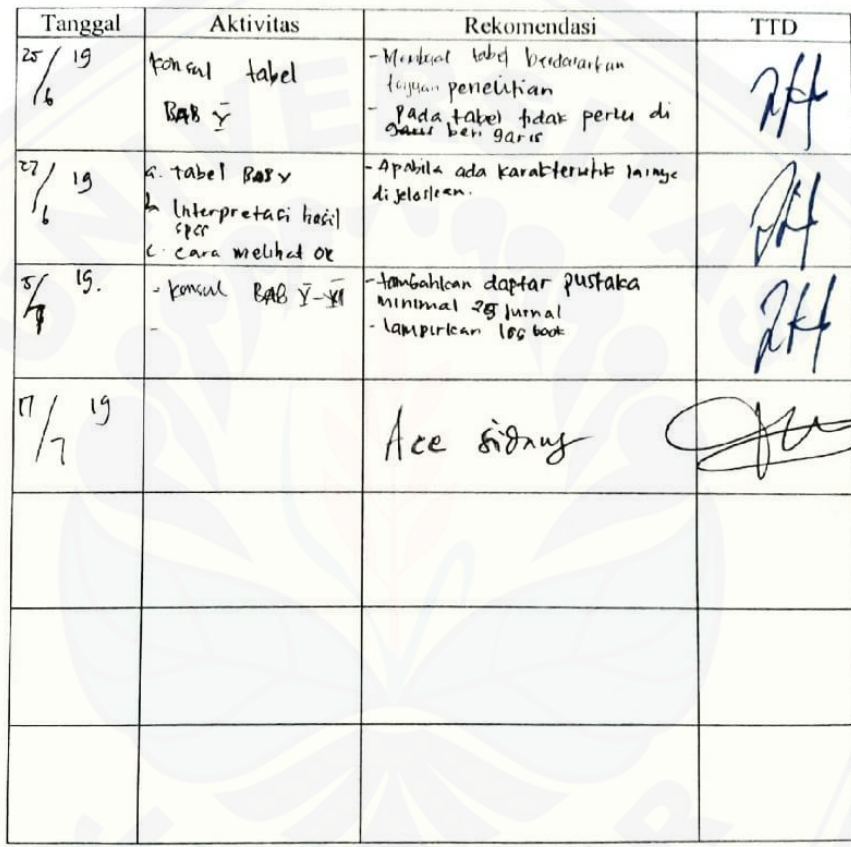 Tanggal Aktivitas Rekomendasi TTD
25/6 19
konsul tabel
BAB V
- Membuat tabel berdasarkan
tujuan penelitian
- Pada tabel tidak perlu di
beri garis
27/6 19
a. tabel BAB V
b. Interpretasi hasil
spss
c. cara melihat OR
- Apabila ada karakteristik lainnya
dijelaskan.
5/7 19.
- konsul BAB V-VI
-
- tambahkan daptar pustaka
minimal 25 jurnal
- lampirkan log book
17/7 19
Acc sidang
UNIVERSITAS